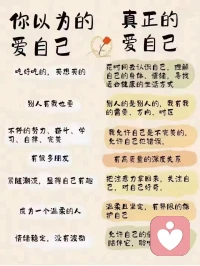 你以为的
爱自己
真正的
爱自己
吃好吃的，买想买的
花时间去认识自己，理解
自己的身体、情绪，寻找
适合健康的生活方式
别人有我也要
别人的是别人的，我有我
的需要、方向、时区
不停的努力、奋斗、学
习、自律、完美
我允许自己是不完美的，
允许自己犯错误。
有很多朋友
有高质量的深度关系
紧随潮流，显得自己有趣
把注意力拿回来，关注自
己，对自己好奇。
成为一个温柔的人
温柔且坚定，有界限的维
护自己
情绪稳定，没有波动
允许自己的
陪伴它，